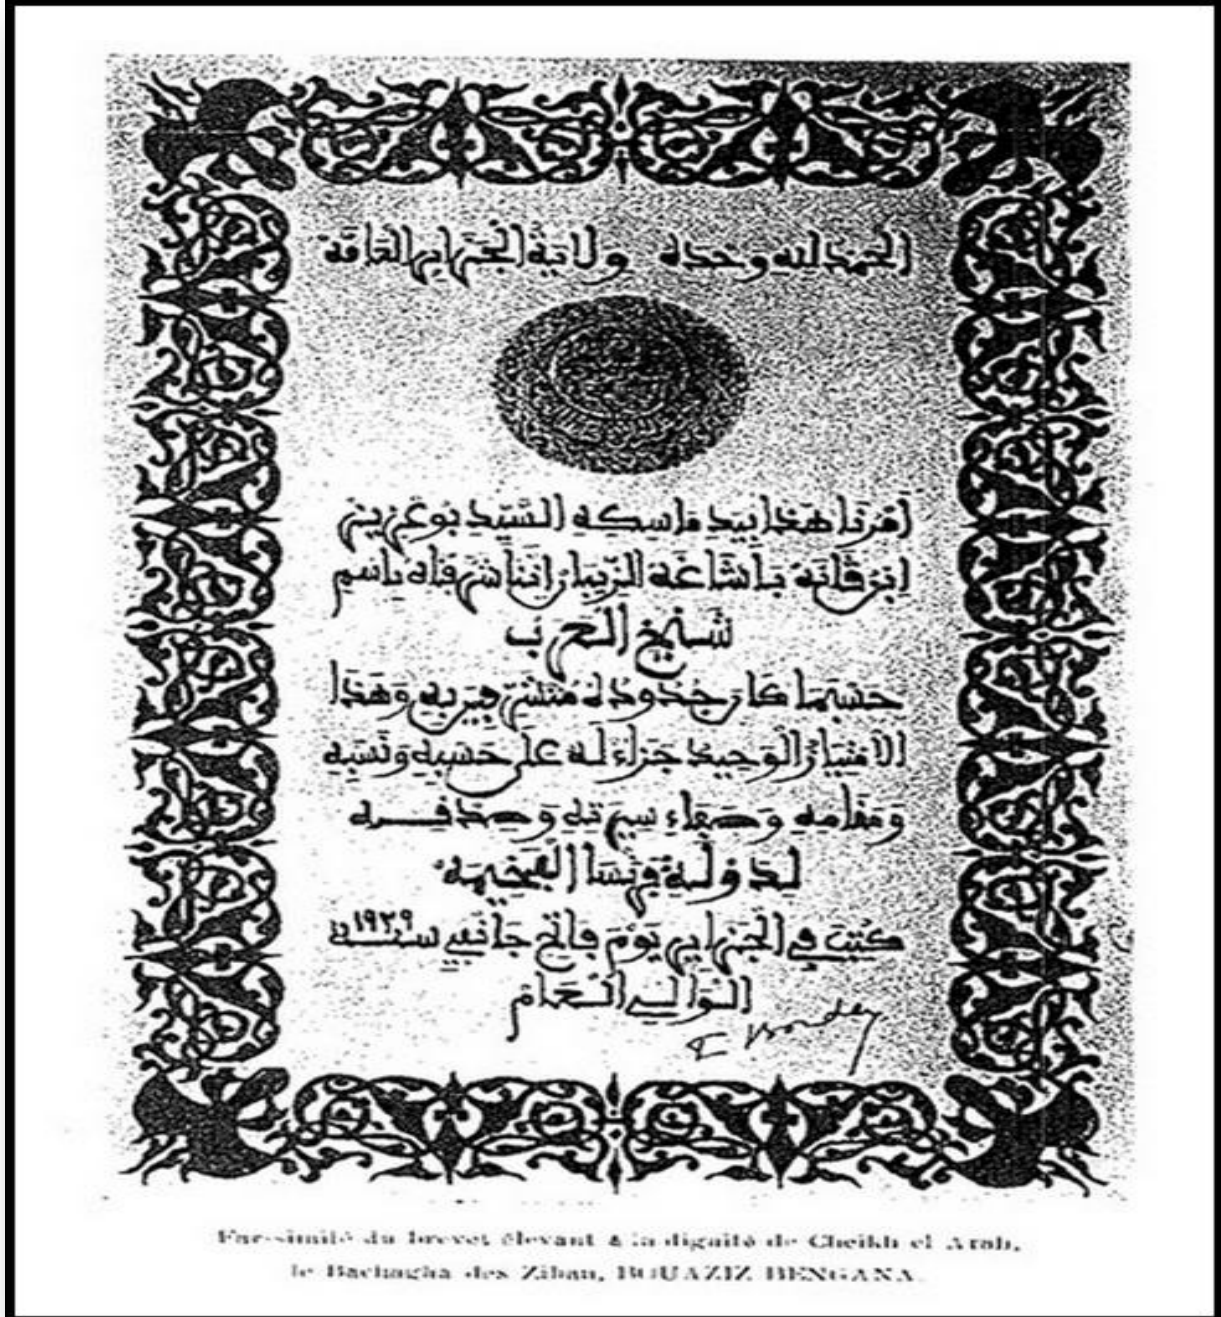 الحمد لله وحده ولاية الجزاير العامة
امرنا هذا بيد ماسكه السيد بوعزيز
ابن ڤانه باشاغة الزيبان اننا شرفناه باسم
شيخ العرب
حسبما كان جدوده متشرفين به وهذا
الامتياز الوحيد جزاء له على حسبه ونسبه
ومقامه وصفاء سيرته وصدقه
لدولة فرنسا الفخيمة
كتب في الجزاير يوم فاتح جانفي سنة ١٩٣٩
الوالي العام
Fac-similé du brevet élevant à la dignité de Cheikh el Arab,
le Bachagha des Ziban, BOUAZIZ BENGANA.